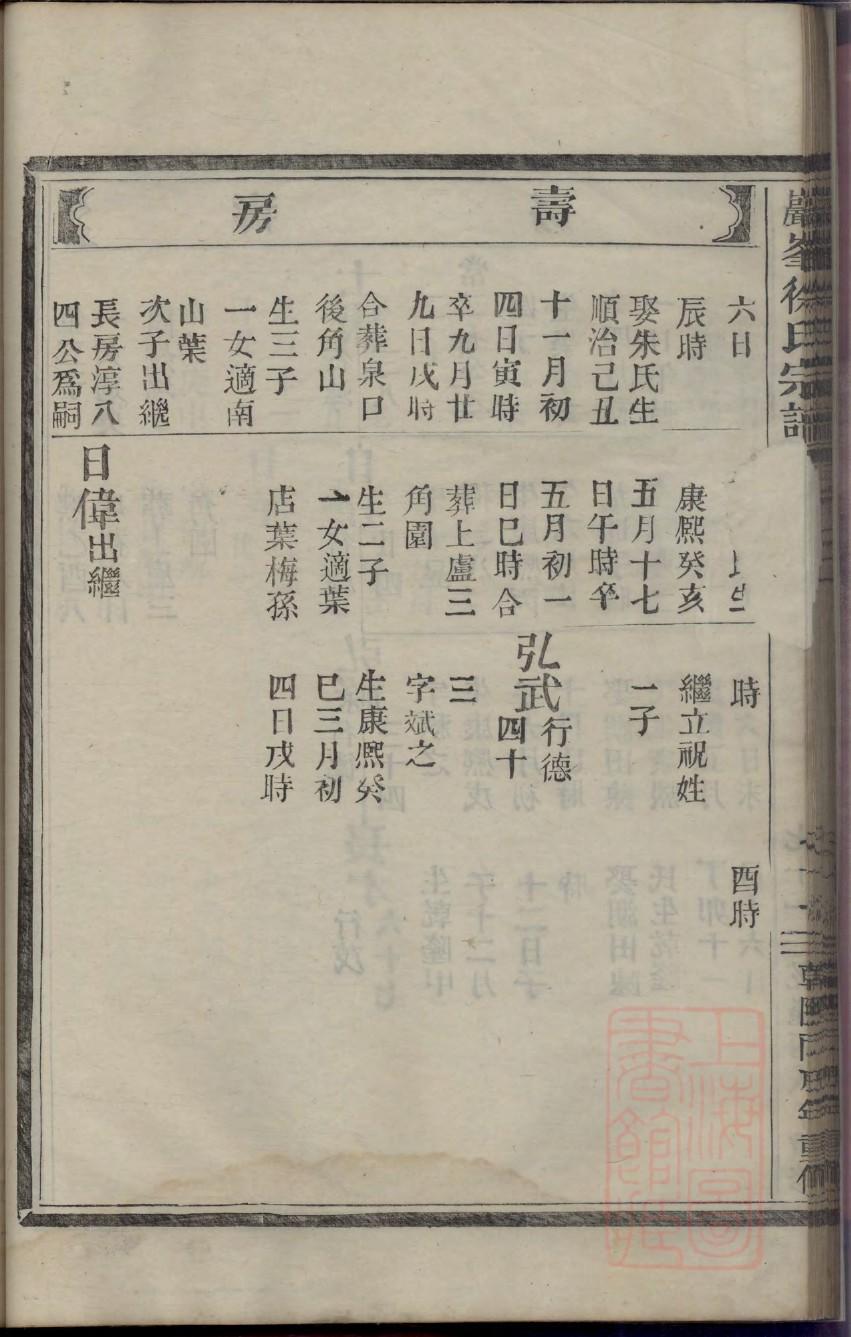 巖峯徐氏宗譜
壽房
六日
辰時
娶朱氏生
順治己丑
十一月初
四日寅時
卒九月廿
九日戌時
合葬泉口
後角山
生三子
一女適南
山葉
次子出繼
長房淳八
四公爲嗣
氏生
康熙癸亥
五月十七
日午時卒
五月初一
日巳時合
葬上盧三
角園
生二子
一女適葉
店葉梅孫
日偉出繼
時
繼立祝姓
一子
弘武行德
四十
三
字斌之
生康熙癸
巳三月初
四日戌時
酉時
民國
年重修
上海圖書館藏